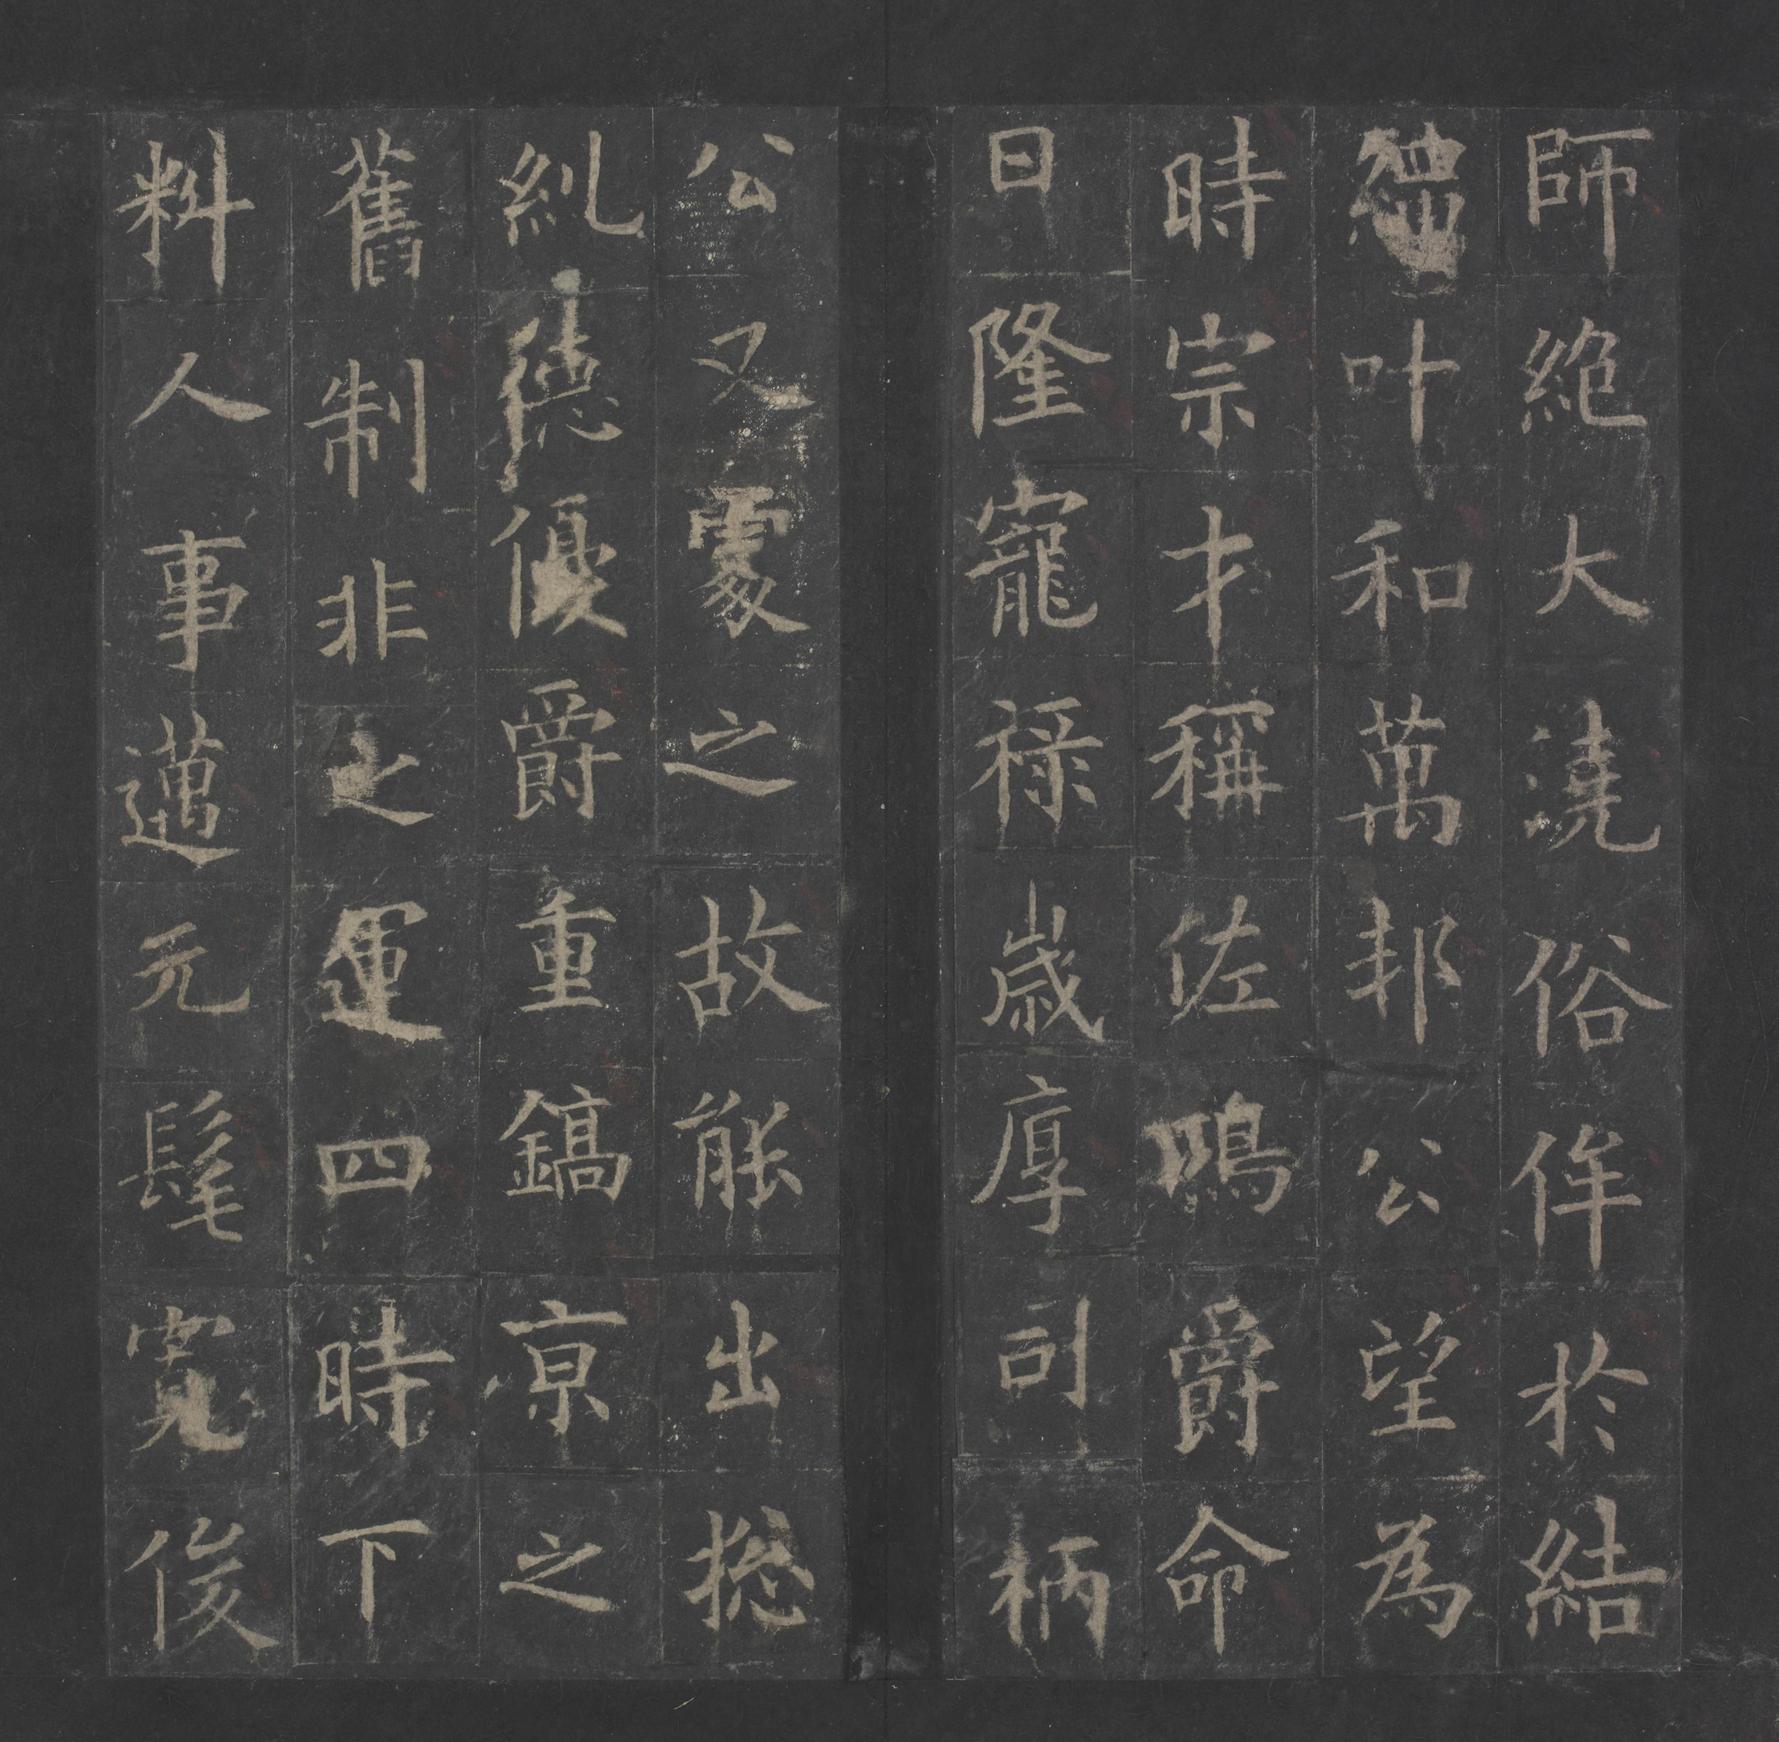 師絶大澆俗侔於結
繩叶和萬邦公望為
時宗才稱佐鳴爵命
日隆寵祿歲厚司柄
公又處之故能出揔
糺德優爵重鎬京之
舊制非之運四時下
料人事邁元髦寬俊